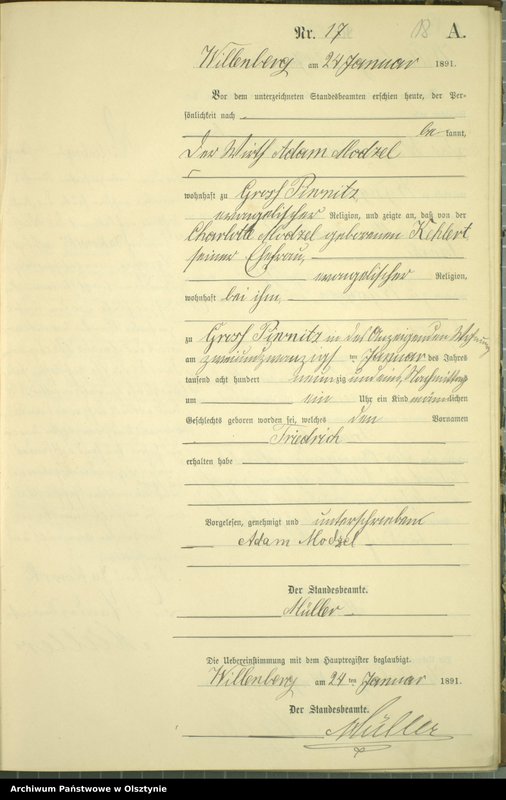 Nr. 17 B A.
Willenberg am 24 Januar 1891.
Vor dem unterzeichneten Standesbeamten erschien heute, der Per-
sönlichkeit nach
be kannt,
Der Wirth Adam Modzel
wohnhaft zu Gross Piwnitz
evangelischer Religion, und zeigte an, daß von der
Charlotte Modzel geborenen
seiner Ehefrau,
evangelischer Religion,
wohnhaft bei ihm,
zu Gross Piwnitz in des Anzeigenden Wohnung
am zweiundzwanzigsten Januar des Jahres
tausend acht hundert neunzig und eins, Nachmittags
um ein Uhr ein Kind männlichen
Geschlechts geboren worden sei, welches den Vornamen
Friedrich
erhalten habe
Vorgelesen, genehmigt und unterschrieben
Adam Modzel
Der Standesbeamte.
Müller
Die Uebereinstimmung mit dem Hauptregister beglaubigt.
Willenberg am 24 ten Januar 1891.
Der Standesbeamte.
Müller
Archiwum Państwowe w Olsztynie